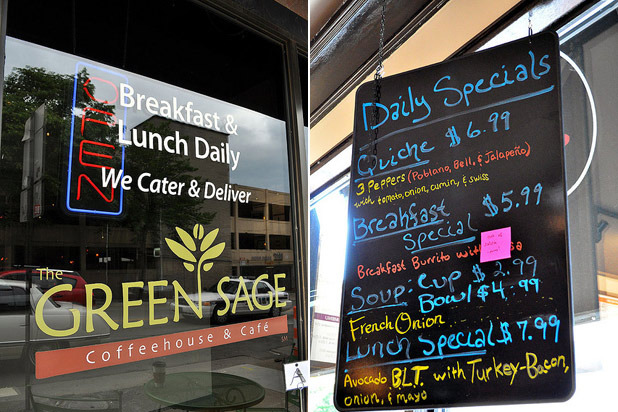 OPEN
Breakfast &
Lunch Daily
We Cater & Deliver
The
GREEN SAGE
Coffeehouse & Café
SM
Daily Specials
Quiche $6.99
3 Peppers (Poblano, Bell, & Jalapeño)
with tomato, onion, cumin, & swiss
Breakfast $5.99
Special
Breakfast Burrito with
Soup: Cup $2.99
Bowl $4.99
French Onion
Lunch Special $7.99
Avocado BLT. with Turkey-Bacon,
onion, & mayo